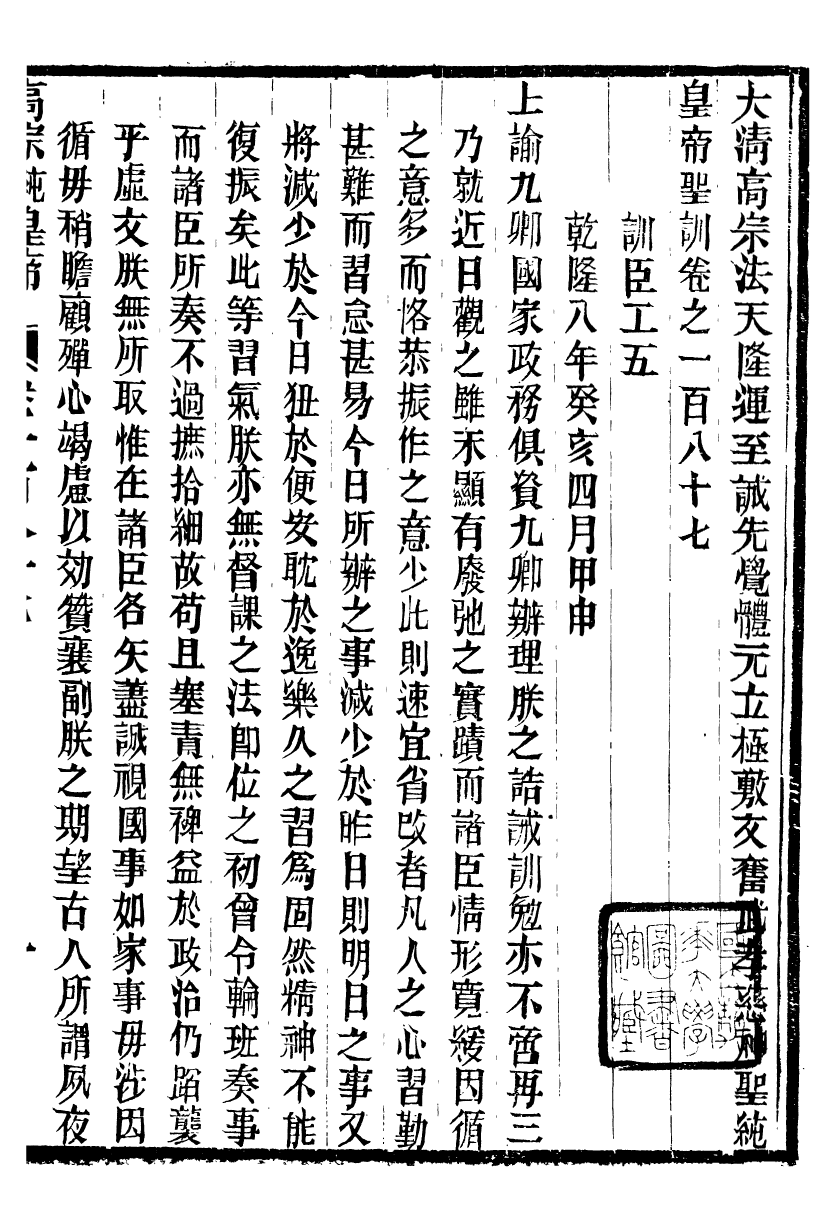 大清高宗法天隆運至誠先覺體元立極敷文奮武孝慈神聖純
皇帝聖訓卷之一百八十七
訓臣工五
乾隆八年癸亥四月甲申
上諭九卿國家政務俱資九卿辦理朕之誥誡訓勉亦不啻再三
乃就近日觀之雖未顯有廢弛之實蹟而諸臣情形寬緩因循
之意多而恪恭振作之意少此則速宜省改者凡人之心習勤
甚難而習怠甚易今日所辦之事減少於昨日則明日之事又
將減少於今日狃於便安耽於逸樂久之習為固然精神不能
復振矣此等習氣朕亦無督課之法卽位之初曾令輪班奏事
而諸臣所奏不過摭拾細故苟且塞責無裨益於政治仍蹈襲
乎虛文朕無所取惟在諸臣各矢蓋誠視國事如家事毋涉因
循毋稍瞻顧殫心竭慮以効贊襄副朕之期望古人所謂夙夜
高宗純皇帝
一